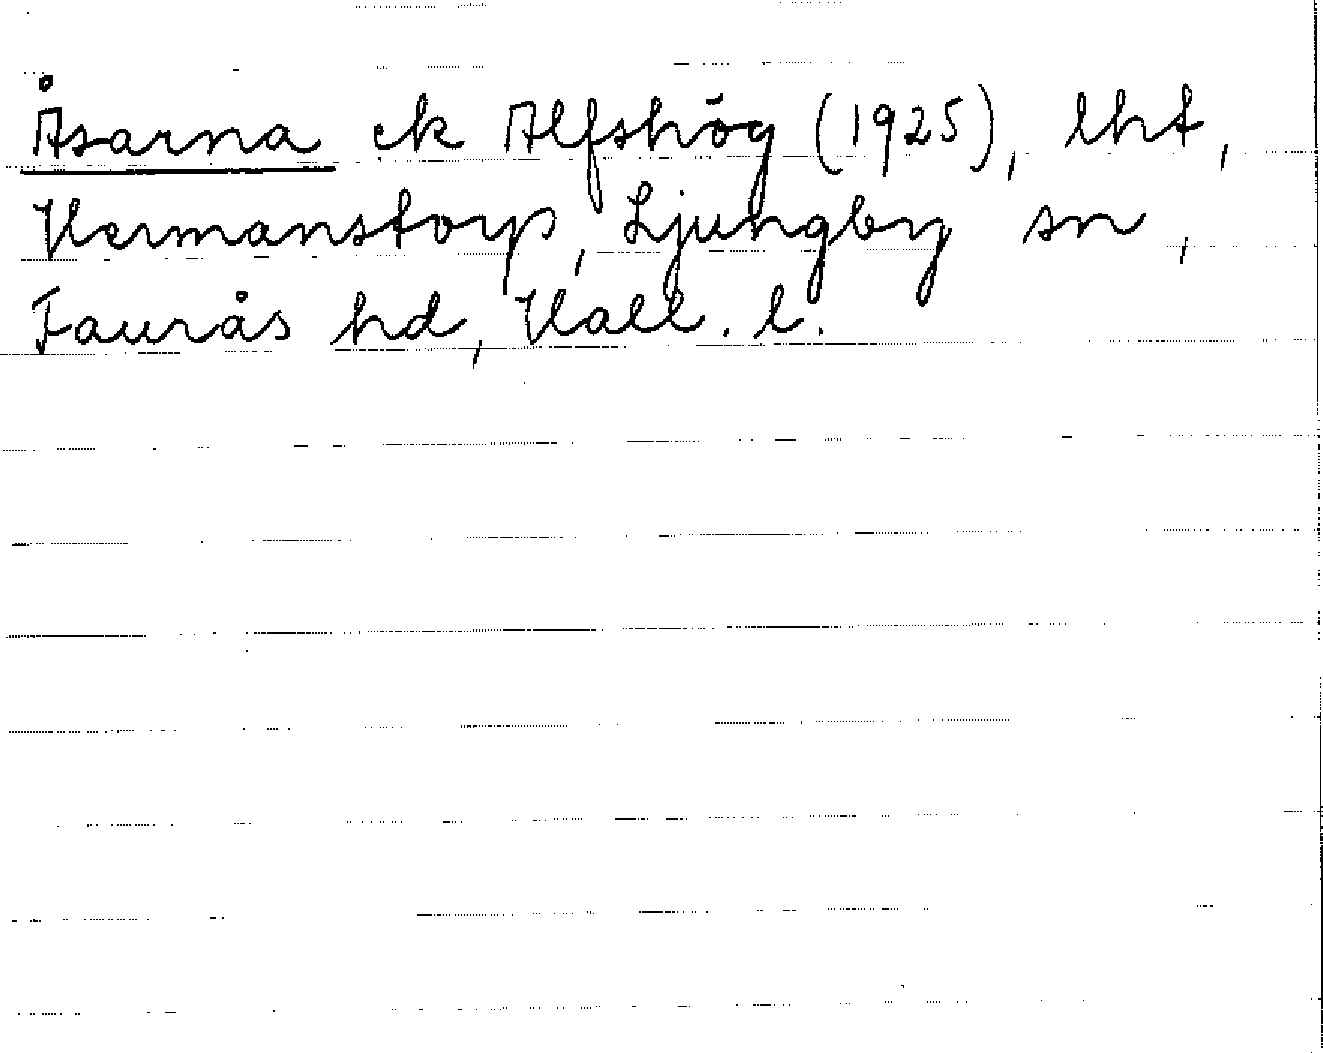 Åsarna ek Alfshög (1925), lht,
Hermanstorp, Ljungby sn,
Faurås hd, Hall. l.